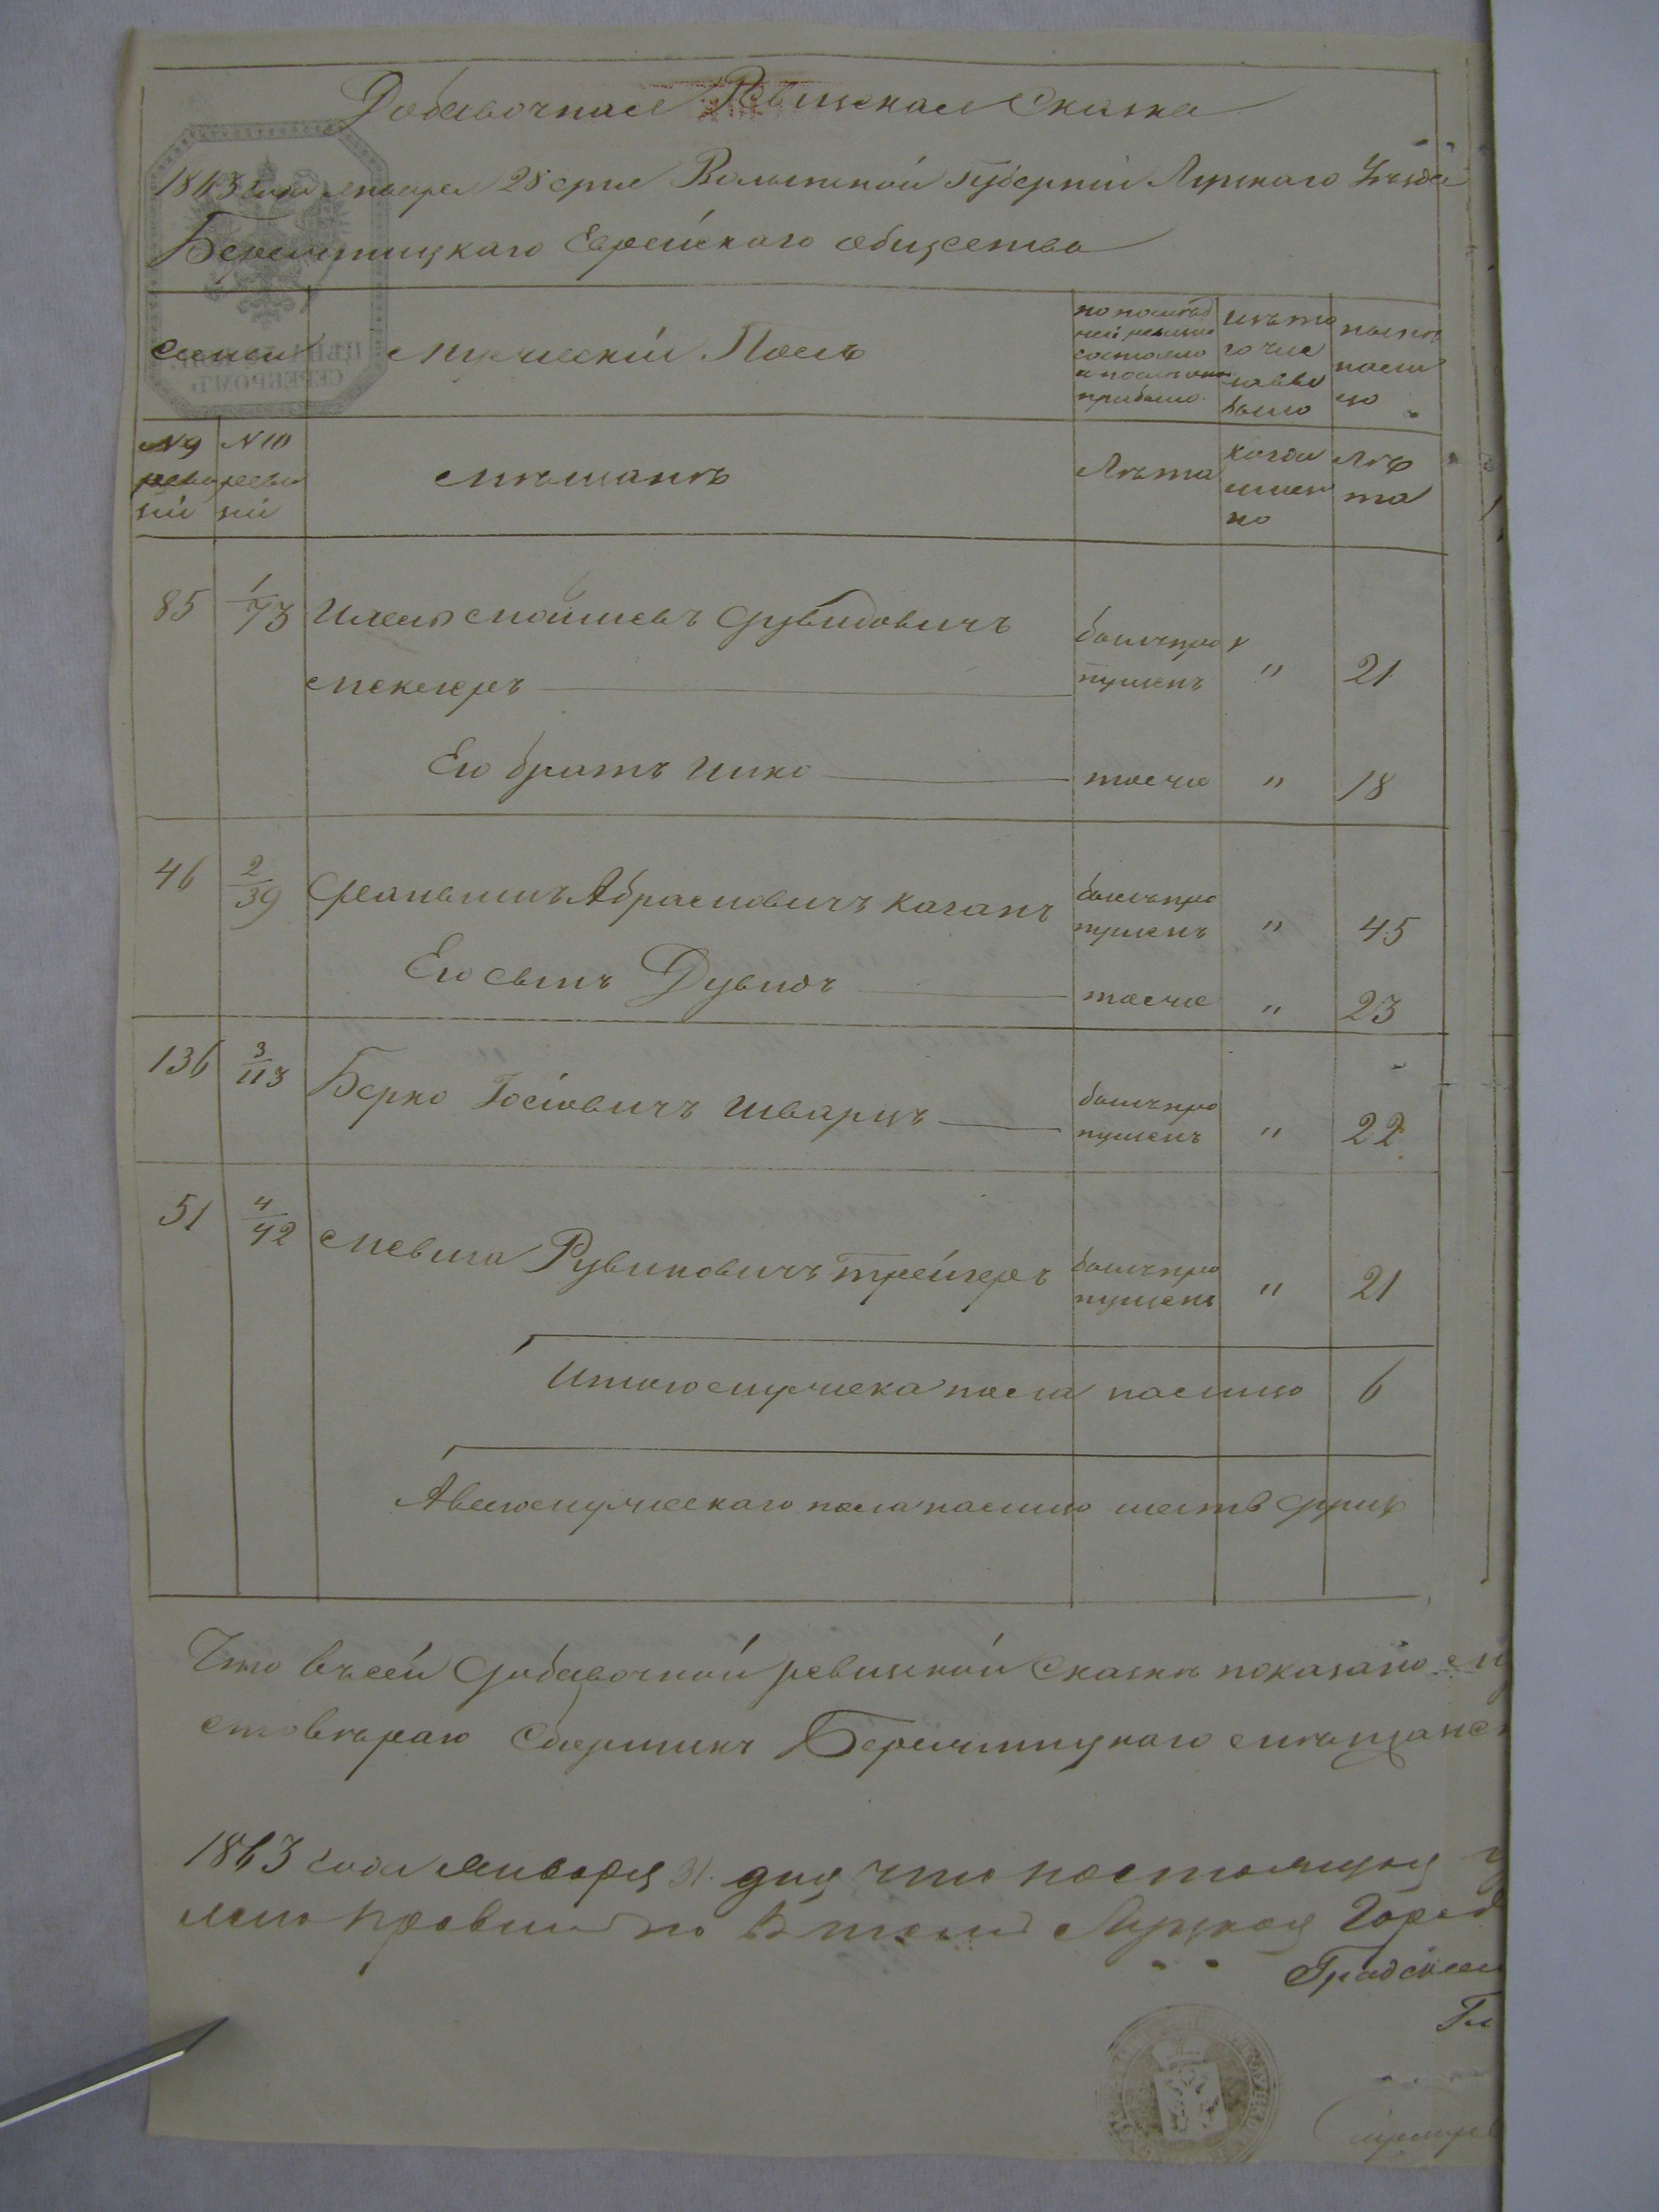 Добавочная Ревизская Сказка
1863 года января 28 дня Волынской Губерніи Луцкаго Уѣзда
Берестицкаго Еврейскаго общества
Семьи
Мужескій Полъ
по послѣд
ней ревизіи
состояло
и послѣ оной
прибыло
изъ то
го чис
ла вы
было
нынѣ
на ли
цо
№ 9
реви
зіи
№ 10
реви
зіи
Мѣщанъ
Лѣта
когда
имен
но
Лѣ
та
85 1/73 Мошковъ Дувидовичъ
Меклеръ
былъ про
пущенъ " 21
Его братъ Ицко тоже " 18
46 2/39 Абрамовичъ Каганъ былъ про
пущенъ " 45
Его сынъ Дувидъ тоже " 23
136 3/113 Берко Іосіовичъ Шварцъ былъ про
пущенъ " 22
51 4/42 Рувиновичъ Трейгеръ былъ про
пущенъ " 21
Итого мужеска пола налицо 6
А всего мужескаго пола налицо шесть душъ
Что въ сей добавочной ревизской сказкѣ показано
Сборщикъ Берестицкаго мѣщанск
1863 года Января 31 дня что настоящая
въ томъ Луцкая Город
Градской
Гл